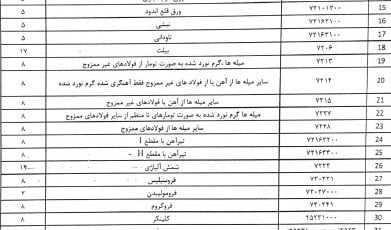 15 ۷۲۱۰۱۲۰۰ ورق قلع اندود ۵
16 ۷۲۱۶۲۱۰۰ نبشی ۵
17 ۷۲۱۶۳۱۰۰ ناودانی ۵
18 ۷۲۰۶ بیلت ۱۷
19 ۷۲۱۳ میله ها ،گرم نورد شده به صورت تومار از فولادهای غیر ممزوج ۸
20 ۷۲۱۴ سایر میله ها از آهن یا از فولاد های غیر ممزوج فقط آهنگری شده گرم نورد شده ۸
21 ۷۲۱۵ سایر میله ها از آهن یا فولادهای غیر ممزوج ۸
22 ۷۲۲۷ میله ها گرم نورد شده به صورت تومارهای نا منظم از سایر فولادهای ممزوج ۸
23 ۷۲۲۸ سایر میله ها از فولادهای ممزوج ۸
24 ۷۲۱۶۳۲۰۰ تیرآهن با مقطع I ۸
25 ۷۲۱۶۳۳۰۰ تیرآهن با مقطع H ۸
26 ۷۲۲۴ شمش آلیاژی ۱۴
27 ۷۲۰۲۲۱ فروسیلیس ۸
28 ۷۲۰۲۷۰۰۰ فرومولیبدن ۲
29 ۷۲۰۲۴۱ فروکروم ۸
30 ۲۵۲۳۱۰۰۰ کلینکر ۸